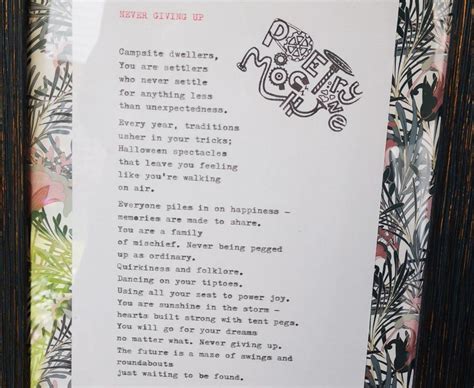 NEVER GIVING UP
Campsite dwellers,
You are settlers
who never settle
for anything less
than unexpectedness.
Every year, traditions
usher in your tricks;
Halloween spectacles
that leave you feeling
like you're walking
on air.
Everyone piles in on happiness -
memories are made to share.
You are a family
of mischief. Never being pegged
up as ordinary.
Quirkiness and folklore.
Dancing on your tiptoes.
Using all your zest to power joy.
You are sunshine in the storm -
hearts built strong with tent pegs.
You will go for your dreams
no matter what. Never giving up.
The future is a maze of swings and
roundabouts
just waiting to be found.
POETRY